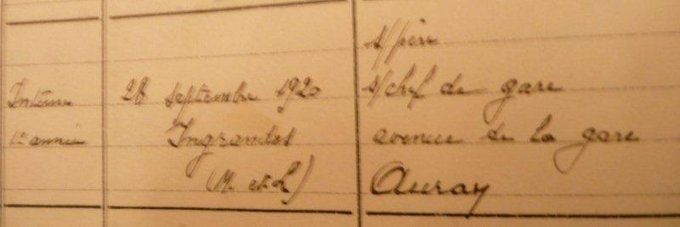 Interne
1ère année
28 septembre 1920
Ingrandes
(M. et L)
s/père
s/chef de gare
avenue de la gare
Auray